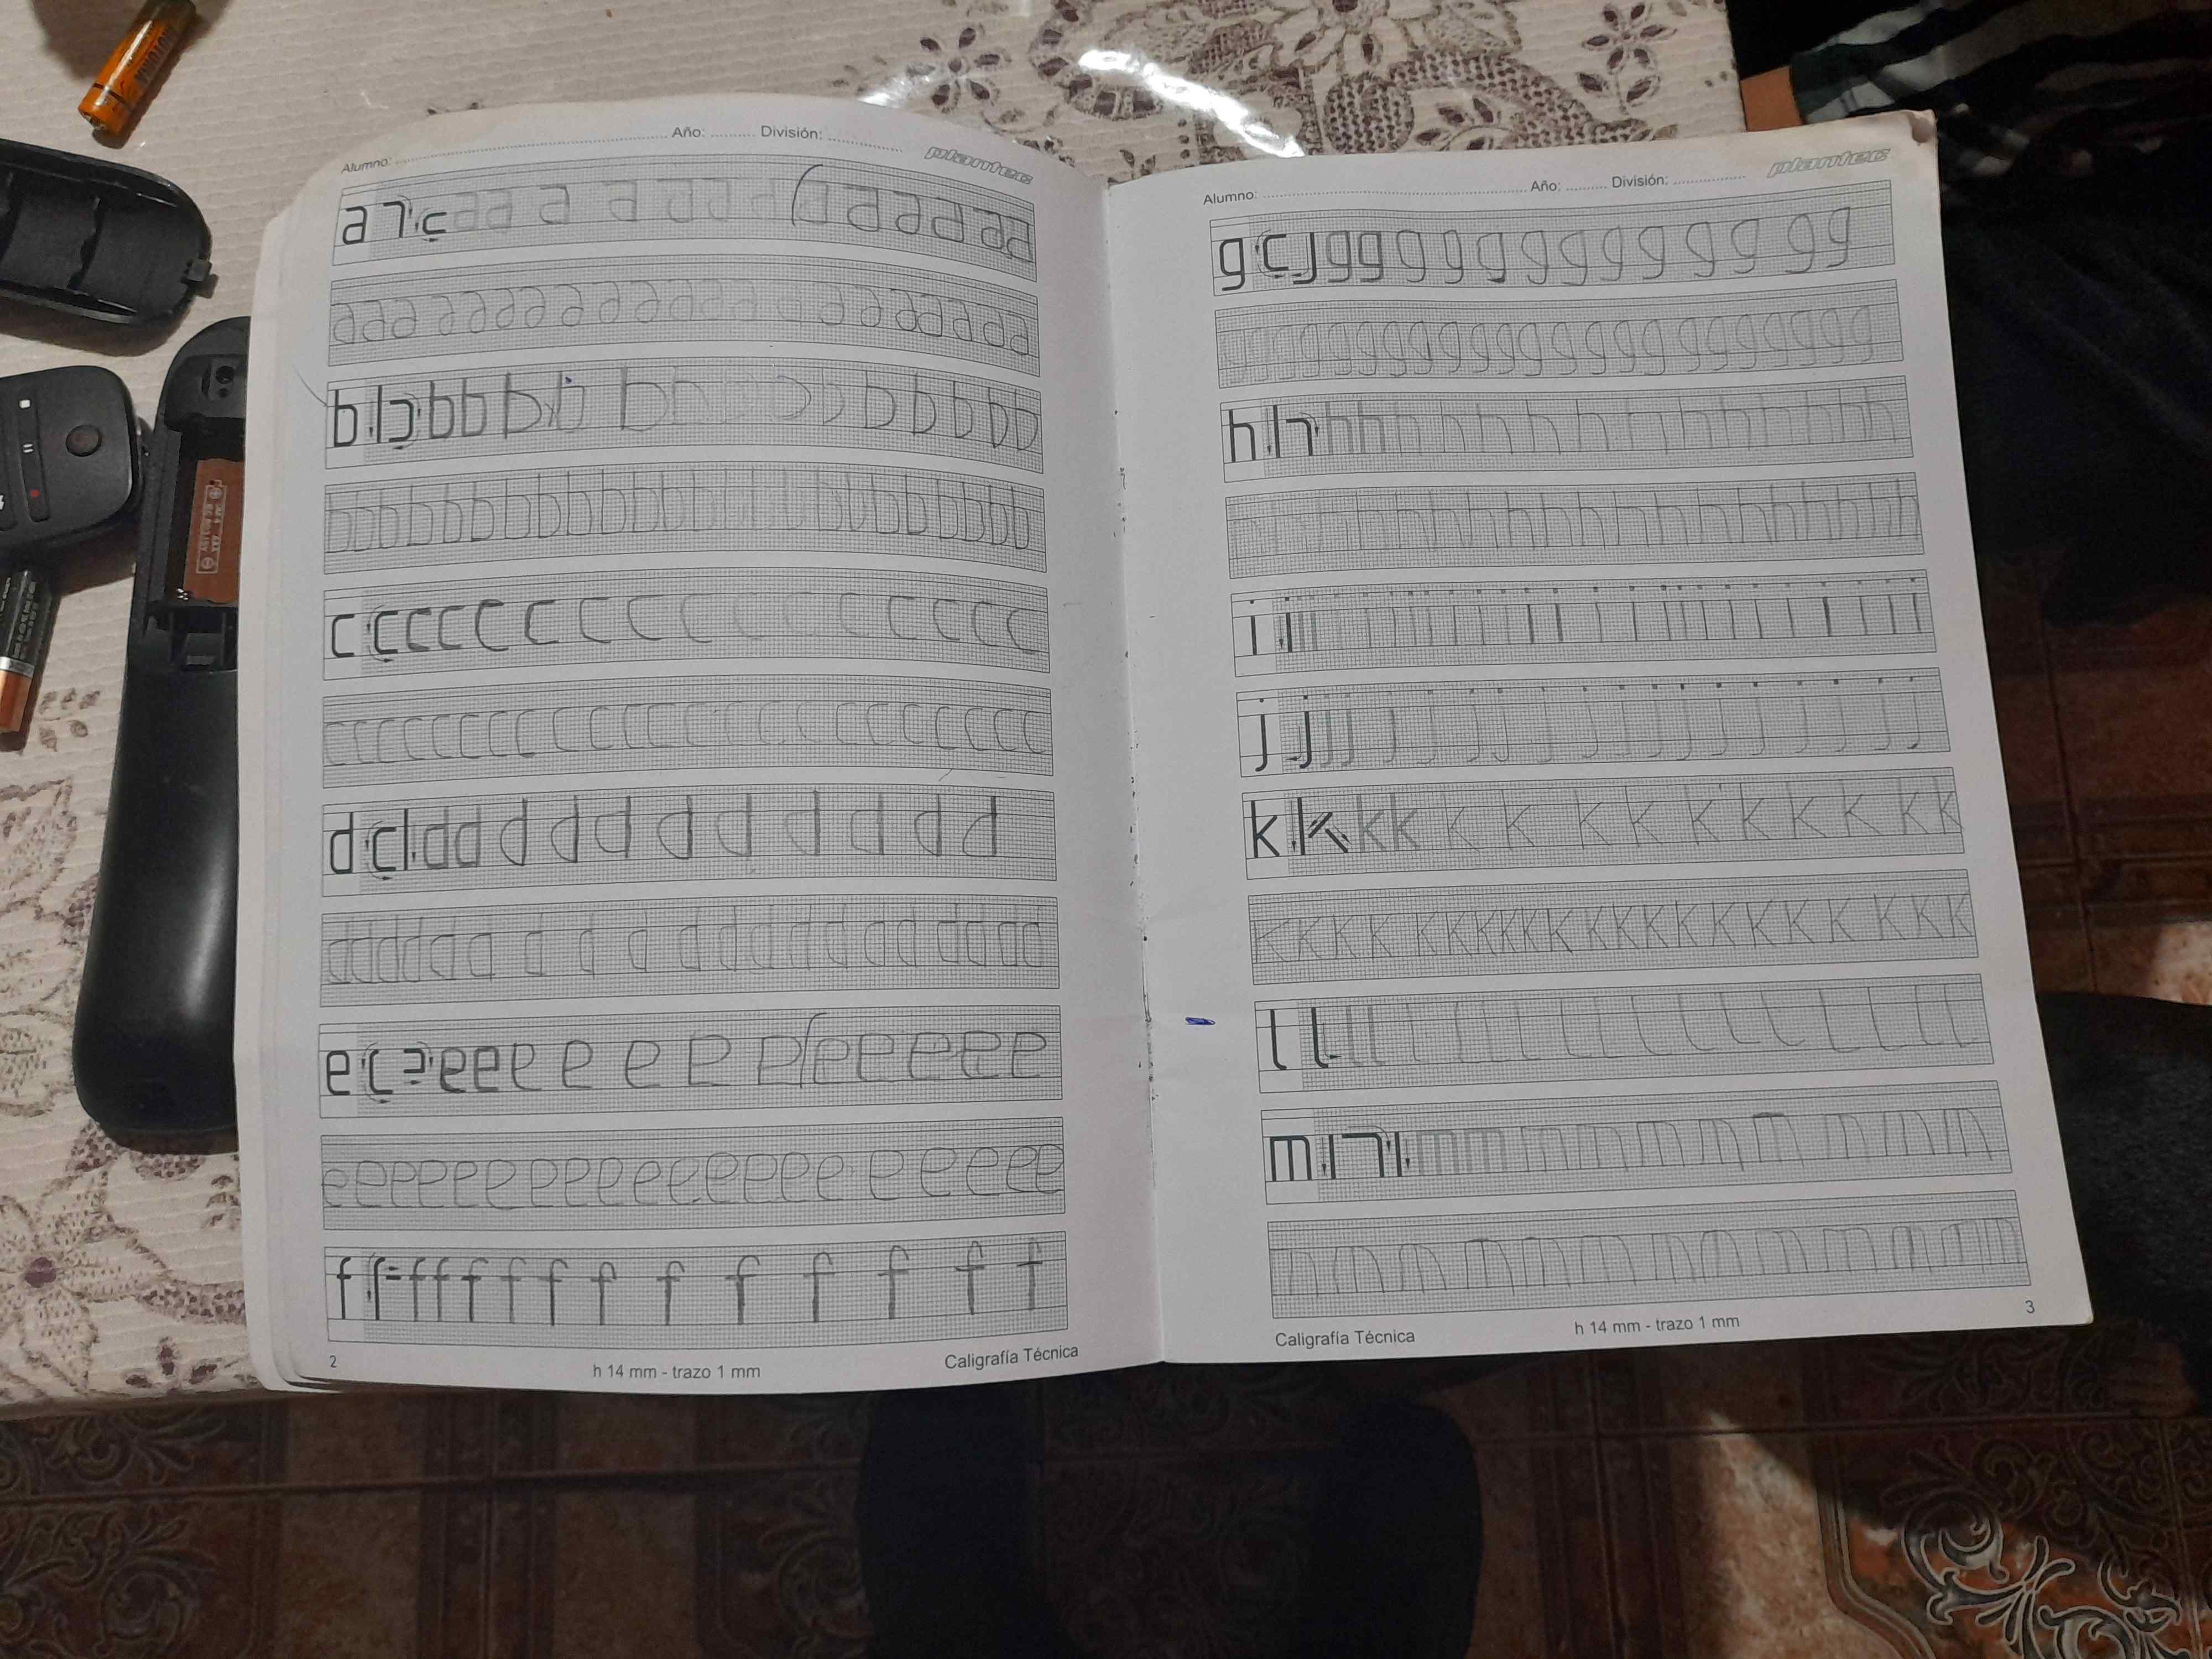 Alumno: ........ Año: ........ División: ........ plantec
a
a a a a a a a a a a a a a a a a a a a a
b b b b b b b b b b b b
b b b b b b b b b b b b b b b b b b b b
c c c c c c c c c c c c c c c c
c c c c c c c c c c c c c c c c c c c c c c
d d d d d d d d d d d d
d d d d d d d d d d d d d d d d d d
e e e e e e e e e e e e e
e e e e e e e e e e e e e e e e e e e e
f f f f f f f f f f f f f f
2 h 14 mm - trazo 1 mm Caligrafía Técnica
Alumno: ........ Año: ........ División: ........ plantec
g g g g g g g g g g g g g g
g g g g g g g g g g g g g g g g g g g g g
h h h h h h h h h h h h h h
h h h h h h h h h h h h h h h h h
i i i i i i i i i i i i i i i i i i i i
j j j j j j j j j j j j j j j j j
k k k k k k k k k k k k k k
k k k k k k k k k k k k k k k k k k k k
l l l l l l l l l l l l l l l l l
m m m m m m m m m m m
m m m m m m m m m m m m m
Caligrafía Técnica h 14 mm - trazo 1 mm 3